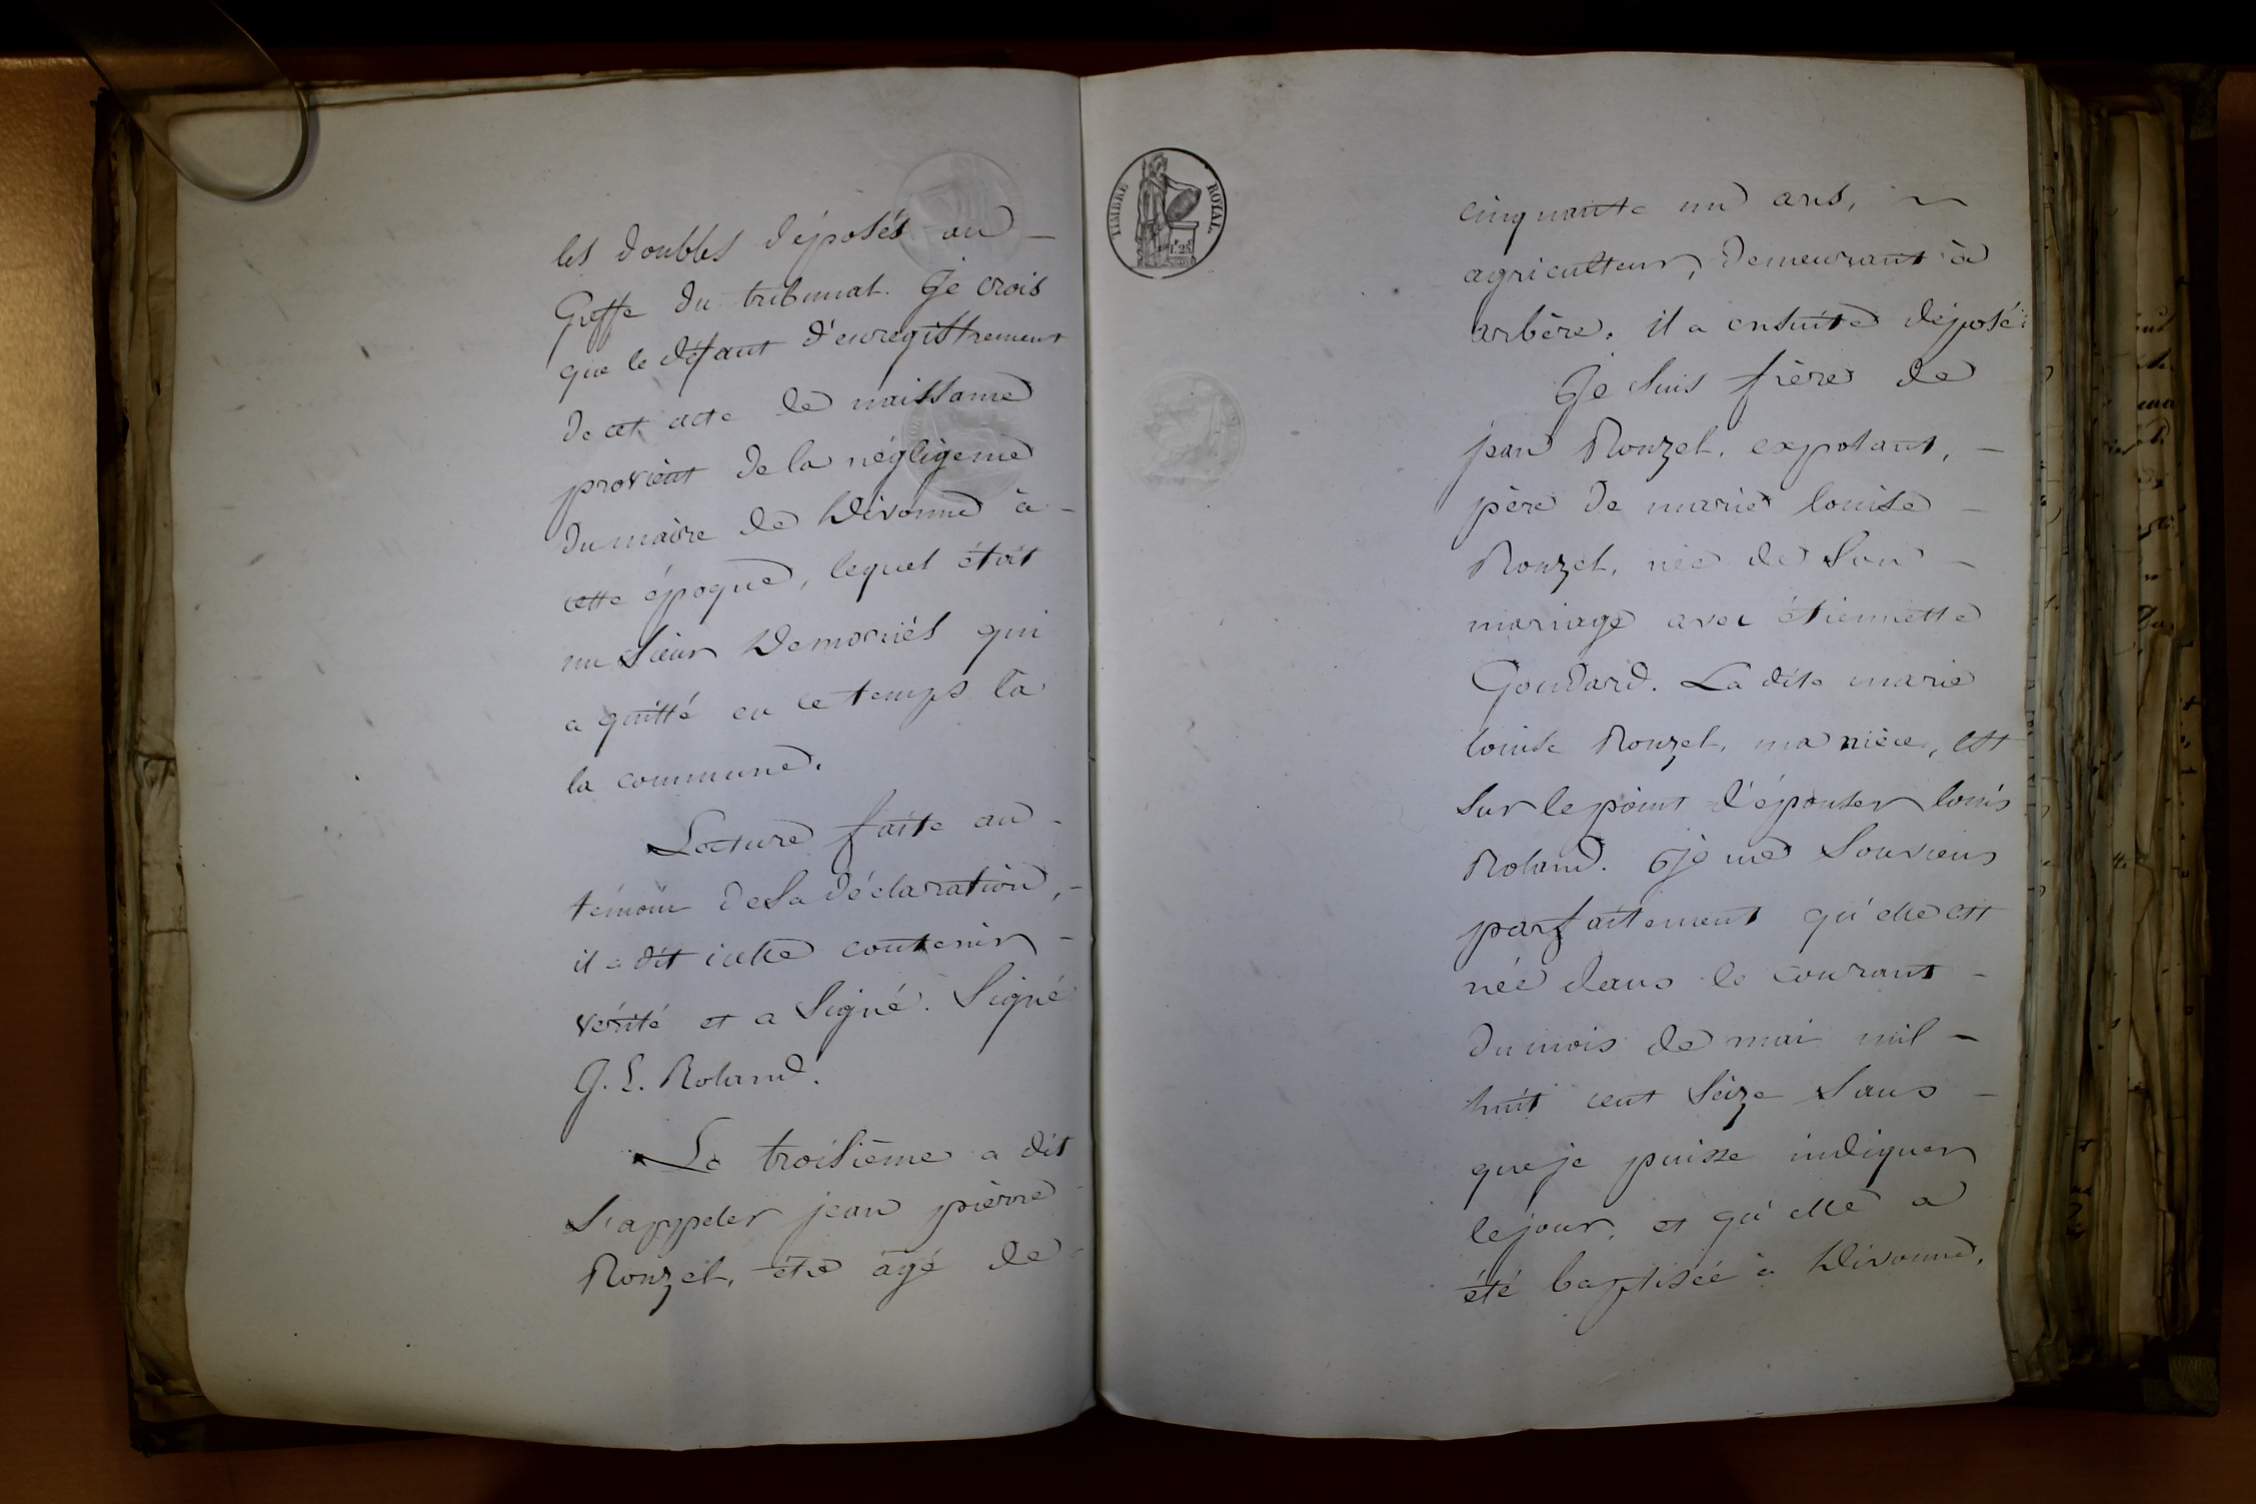 les doubles déposés au —
Greffe du tribunal. Je crois
que le défaut d'enregistrement
de cet acte de naissance
provient de la négligence
du maire de Divonne à —
cette époque, lequel était
un sieur Demorniés qui
a quitté en ce temps là
la commune.
Lecture faite au —
témoin de sa déclaration, —
il a dit icelle contenir —
vérité et a signé. Signé
J. L. Roland.
Le troisième a dit
s'appeler jean pierre
Rouzet, être âgé de
TIMBRE ROYAL
1f 25c
cinquante un ans, ~
agriculteur, demeurant à
arbère. il a ensuite déposé:
Je suis frère de
jean Rouzet, exposant, —
père de marie louise —
Rouzet, née de son —
mariage avec étiennette
Goudard. La dite marie
louise Rouzet, ma nièce, est
sur le point d'épouser louis
Roland. Je me souviens
parfaitement qu'elle est
née dans le courant —
du mois de mai mil —
huit cent seize sans —
que je puisse indiquer
le jour, et qu'elle a
été baptisée à Divonne.